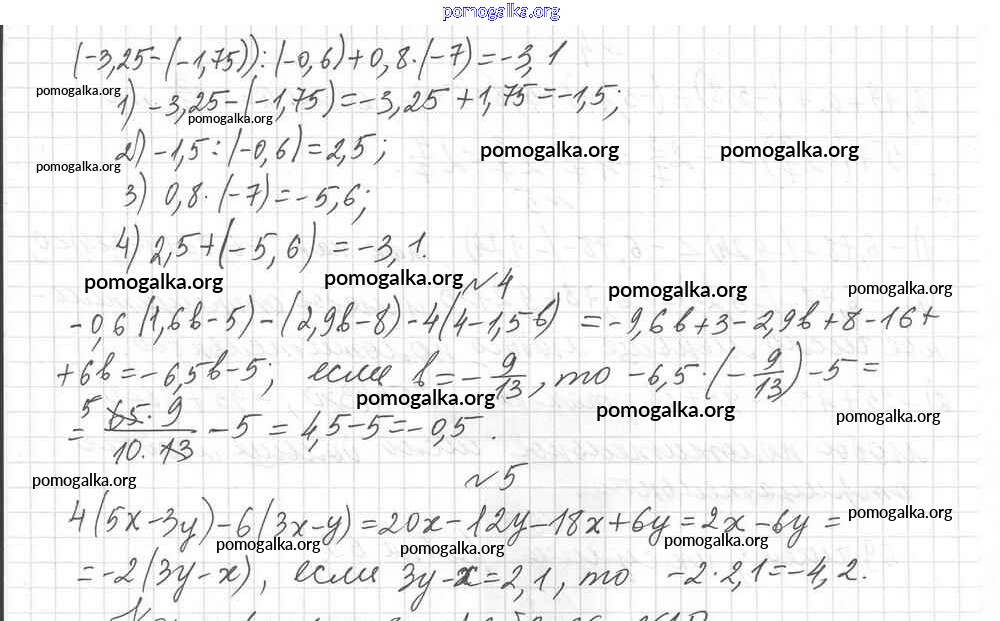 pomogalka.org
(-3,25-(-1,75)):(-0,6)+0,8·(-7)=-3,1
pomogalka.org
1) -3,25-(-1,75)=-3,25+1,75=-1,5;
pomogalka.org
2) -1,5:(-0,6)=2,5;
pomogalka.org pomogalka.org
pomogalka.org
3) 0,8·(-7)=-5,6;
4) 2,5+(-5,6)=-3,1.
pomogalka.org pomogalka.org pomogalka.org pomogalka.org
№4
-0,6(1,6b-5)-(2,9b-8)-4(4-1,5b) =-9,6b+3-2,9b+8-16+
+6b=-6,5b-5; если b=-9/13, то -6,5·(-9/13)-5=
pomogalka.org pomogalka.org pomogalka.org
= 5 65·9/10·13 -5=4,5-5=-0,5.
pomogalka.org
№5
4(5x-3y)-6(3x-y)=20x-12y-18x+6y=2x-6y=
pomogalka.org pomogalka.org pomogalka.org pomogalka.org
=-2(3y-x), если 3y-x=2,1, то -2·2,1=-4,2.